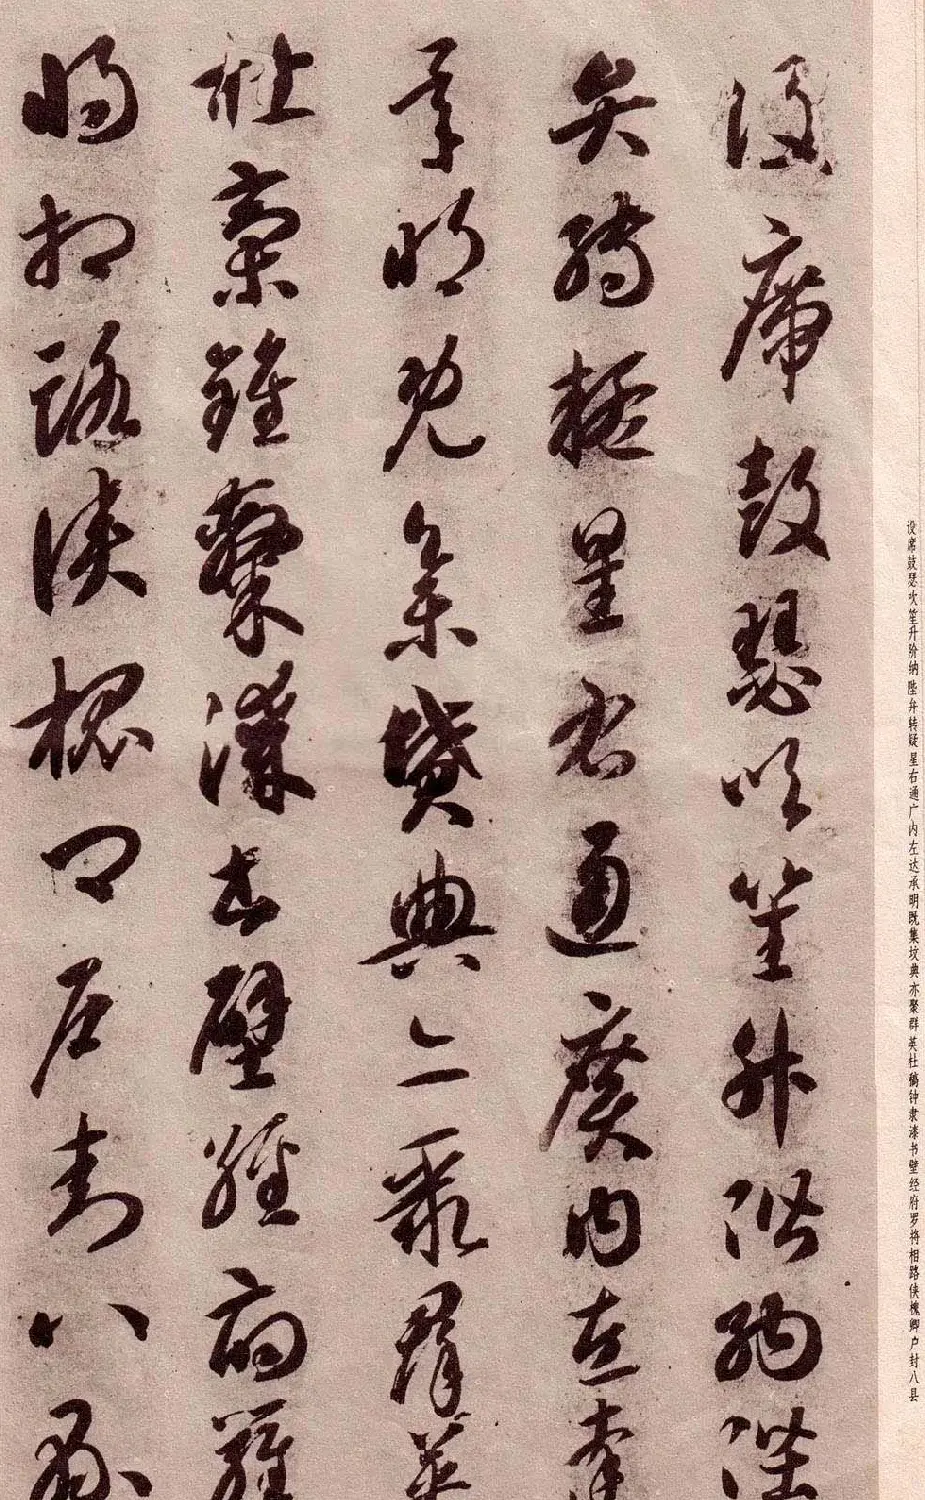 设席鼓瑟吹笙升阶纳陛弁转疑星右通广内左达承明既集坟典亦聚群英杜稿钟隶漆书壁经府罗将相路侠槐卿户封八县
設席鼓瑟吹笙升階納陛
弁轉疑星右通廣內左達
承明既集墳典亦聚群英
杜稾鍾隸漆書壁經府羅
將相路俠槐卿戶封八縣